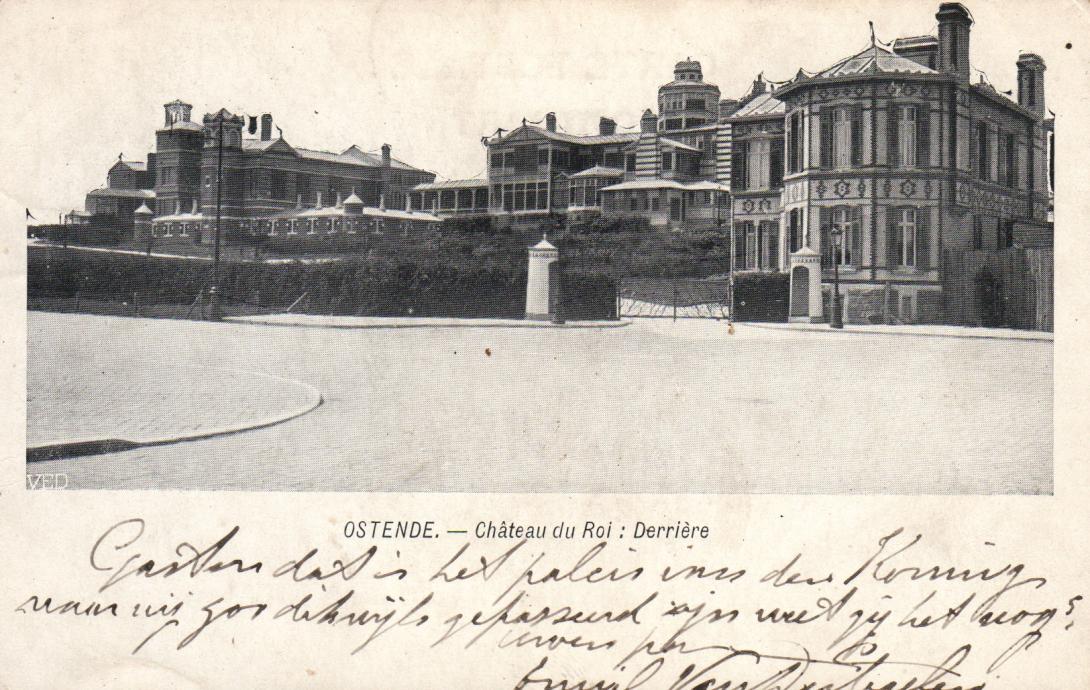 VED
OSTENDE. — Château du Roi : Derrière
Gaston dat is het paleis van den Koning
waar wij zoo dikwijls gepasseerd zijn weet gij het nog?
Emiel